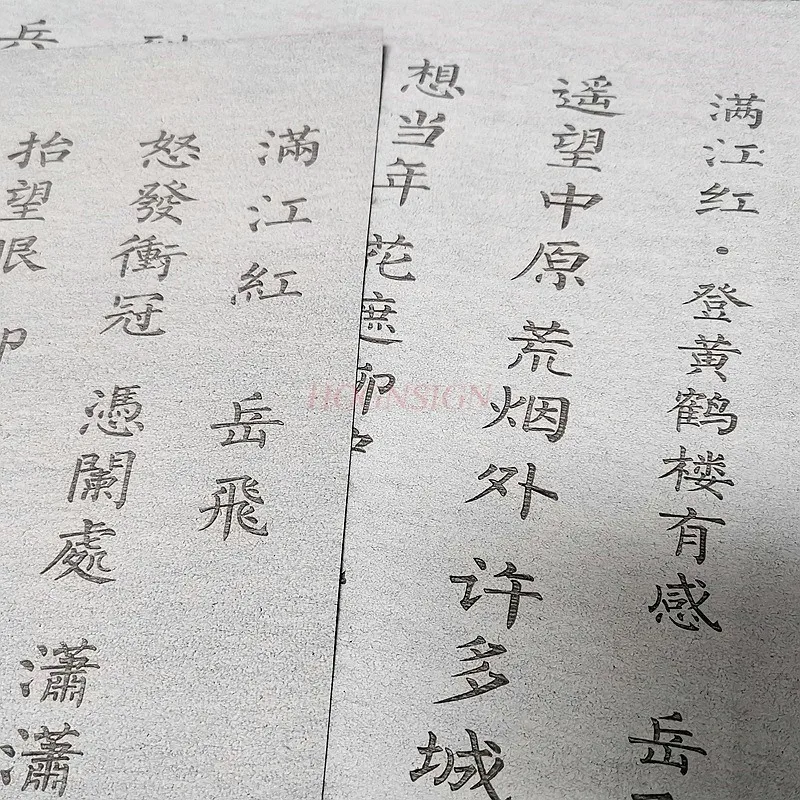 满江红·登黄鹤楼有感 岳
遥望中原 荒烟外 许多城
想当年 花遮柳
滿江紅 岳飛
怒發衝冠 憑闌處 瀟瀟
抬望眼
HOONSIGN